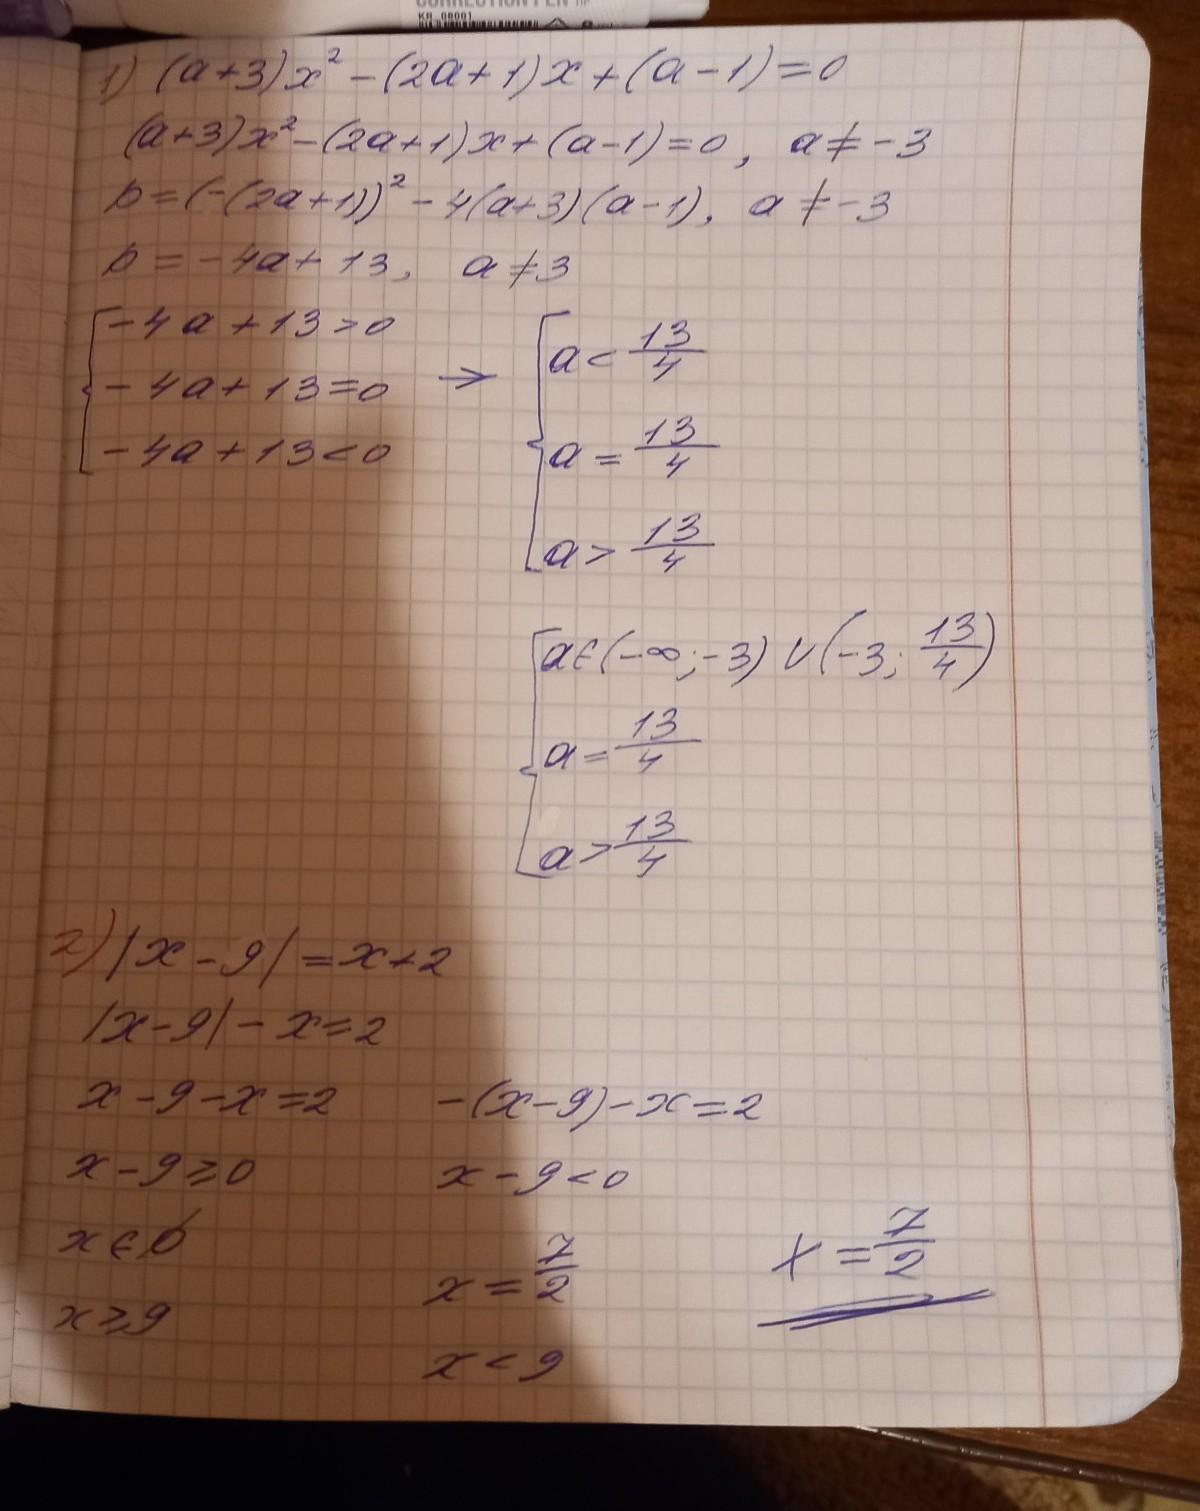 CORRECTION PEN
KR_08001
1) (a+3)x² - (2a+1)x + (a-1) = 0
(a+3)x² - (2a+1)x + (a-1) = 0, a ≠ -3
D = (-(2a+1))² - 4(a+3)(a-1), a ≠ -3
D = -4a + 13, a ≠ 3
-4a + 13 > 0
-4a + 13 = 0 →
-4a + 13 < 0
a < 13/4
a = 13/4
a > 13/4
a ∈ (-∞; -3) ∪ (-3; 13/4)
a = 13/4
a > 13/4
2) |x - 9| = x + 2
|x - 9| - x = 2
x - 9 - x = 2 -(x-9) - x = 2
x - 9 ≥ 0 x - 9 < 0
x ∈ ∅ x = 7/2 x = 7/2
x ≥ 9 x < 9